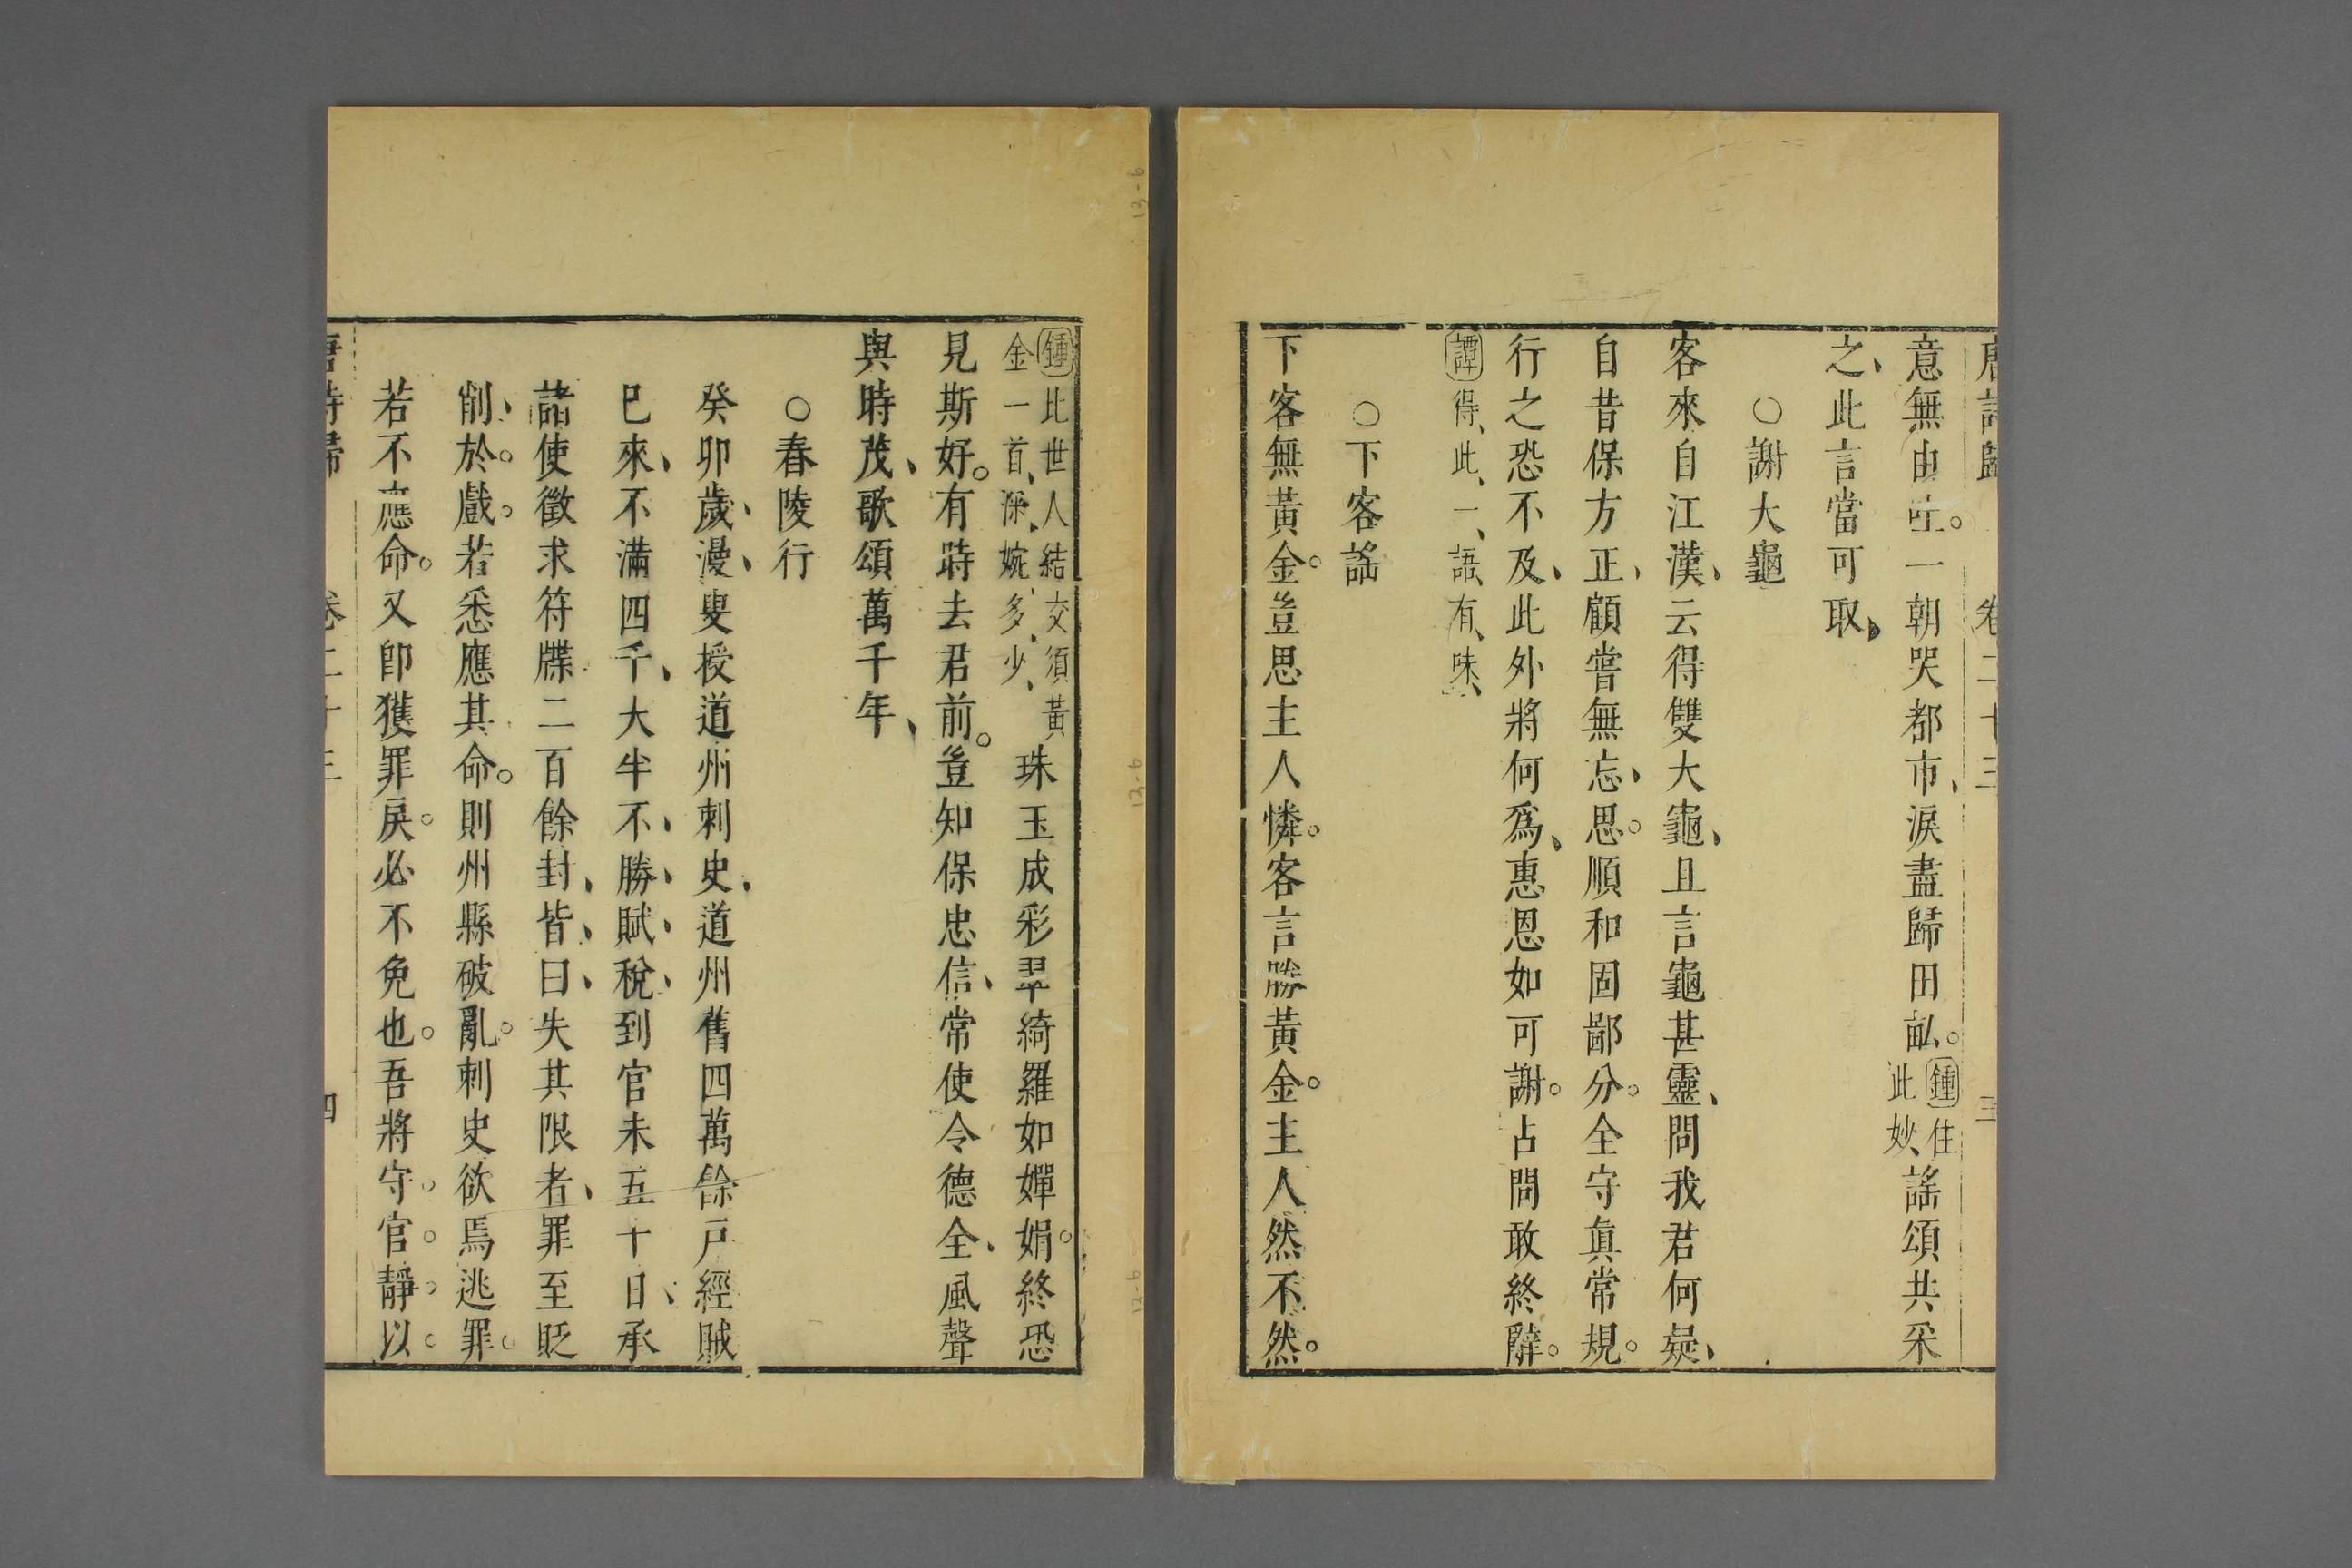 唐詩歸 卷二十三 三
意無由吐。一朝哭都市、淚盡歸田畝。鍾住此妙、謠頌共采
之、此言當可取、
○謝大龜
客來自江漢、云得雙大龜、且言龜甚靈、問我君何疑、
自昔保方正、顧嘗無忘、思。順和固鄙分。全守眞常規。
行之恐不及、此外將何爲、惠恩如可謝。占問敢終辭。
譚得、此、一、語、有、味、
○下客謠
下客無黃金。豈思主人憐。客言勝黃金。主人然不然。
鍾此世人結交須黃
金一首、深、婉、多、少、
珠玉成彩翠綺羅如嬋娟。終恐
見斯好。有時去君前。豈知保忠信、常使令德全、風聲
與時茂、歌頌萬千年、
○舂陵行
癸卯歲、漫、叟授道州刺史、道州舊四萬餘戸經賊
已來、不滿四千、大半不、勝、賦、稅、到官未五十日、承
諸使徵求符牒二百餘封、皆、曰、失其限者、罪至貶
削、於。戲。若悉應其命。則州縣破亂。刺史欲焉逃罪。
若不應命。又卽獲罪戾。必不免也。吾將守。官。靜。以。
唐詩歸 卷二十三 四